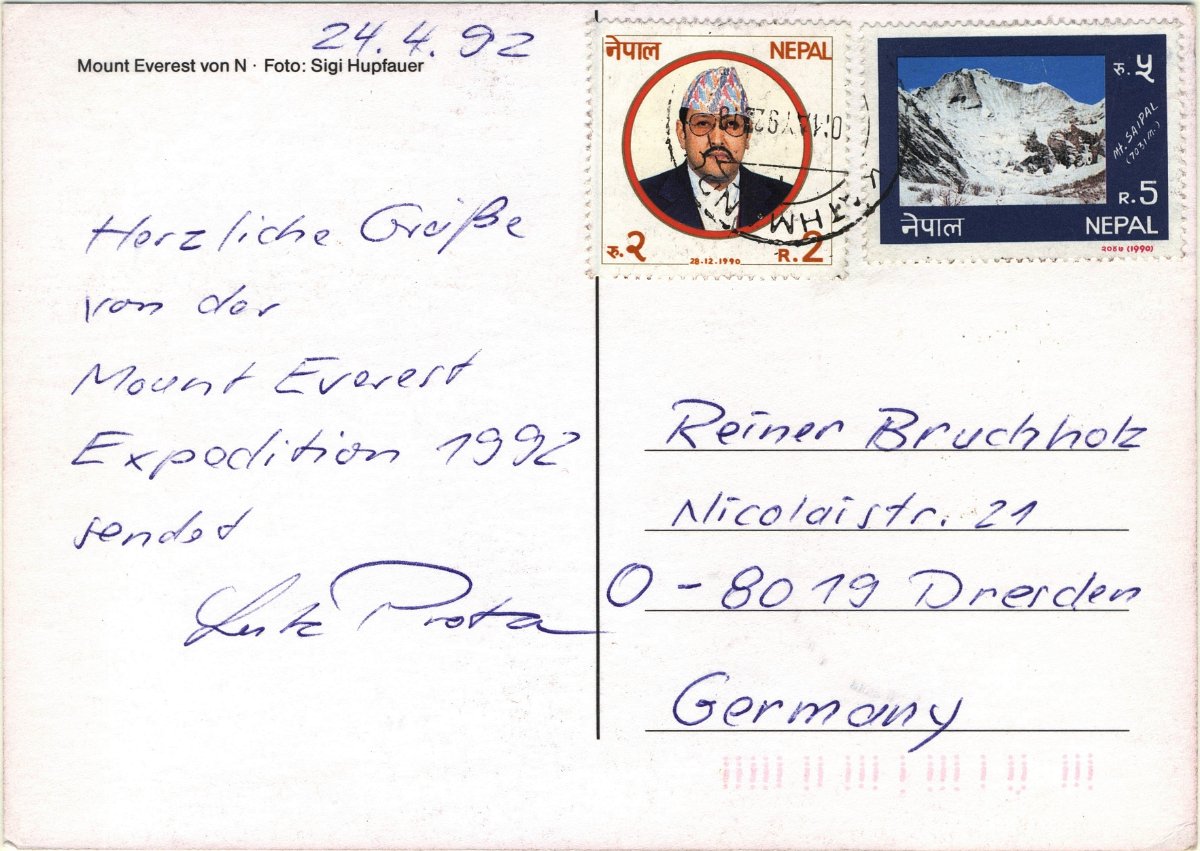 24.4.92
Mount Everest von N · Foto: Sigi Hupfauer
Herzliche Grüße
von der
Mount Everest
Expedition 1992
sendet
नेपाल NEPAL
रु. २ 28-12-1990 R. 2
रु. ५
Mt. SAIPAL
(7031m.)
R. 5
नेपाल NEPAL
२०४७ (1990)
Reiner Bruchholz
Nicolaistr. 21
O-8019 Dresden
Germany